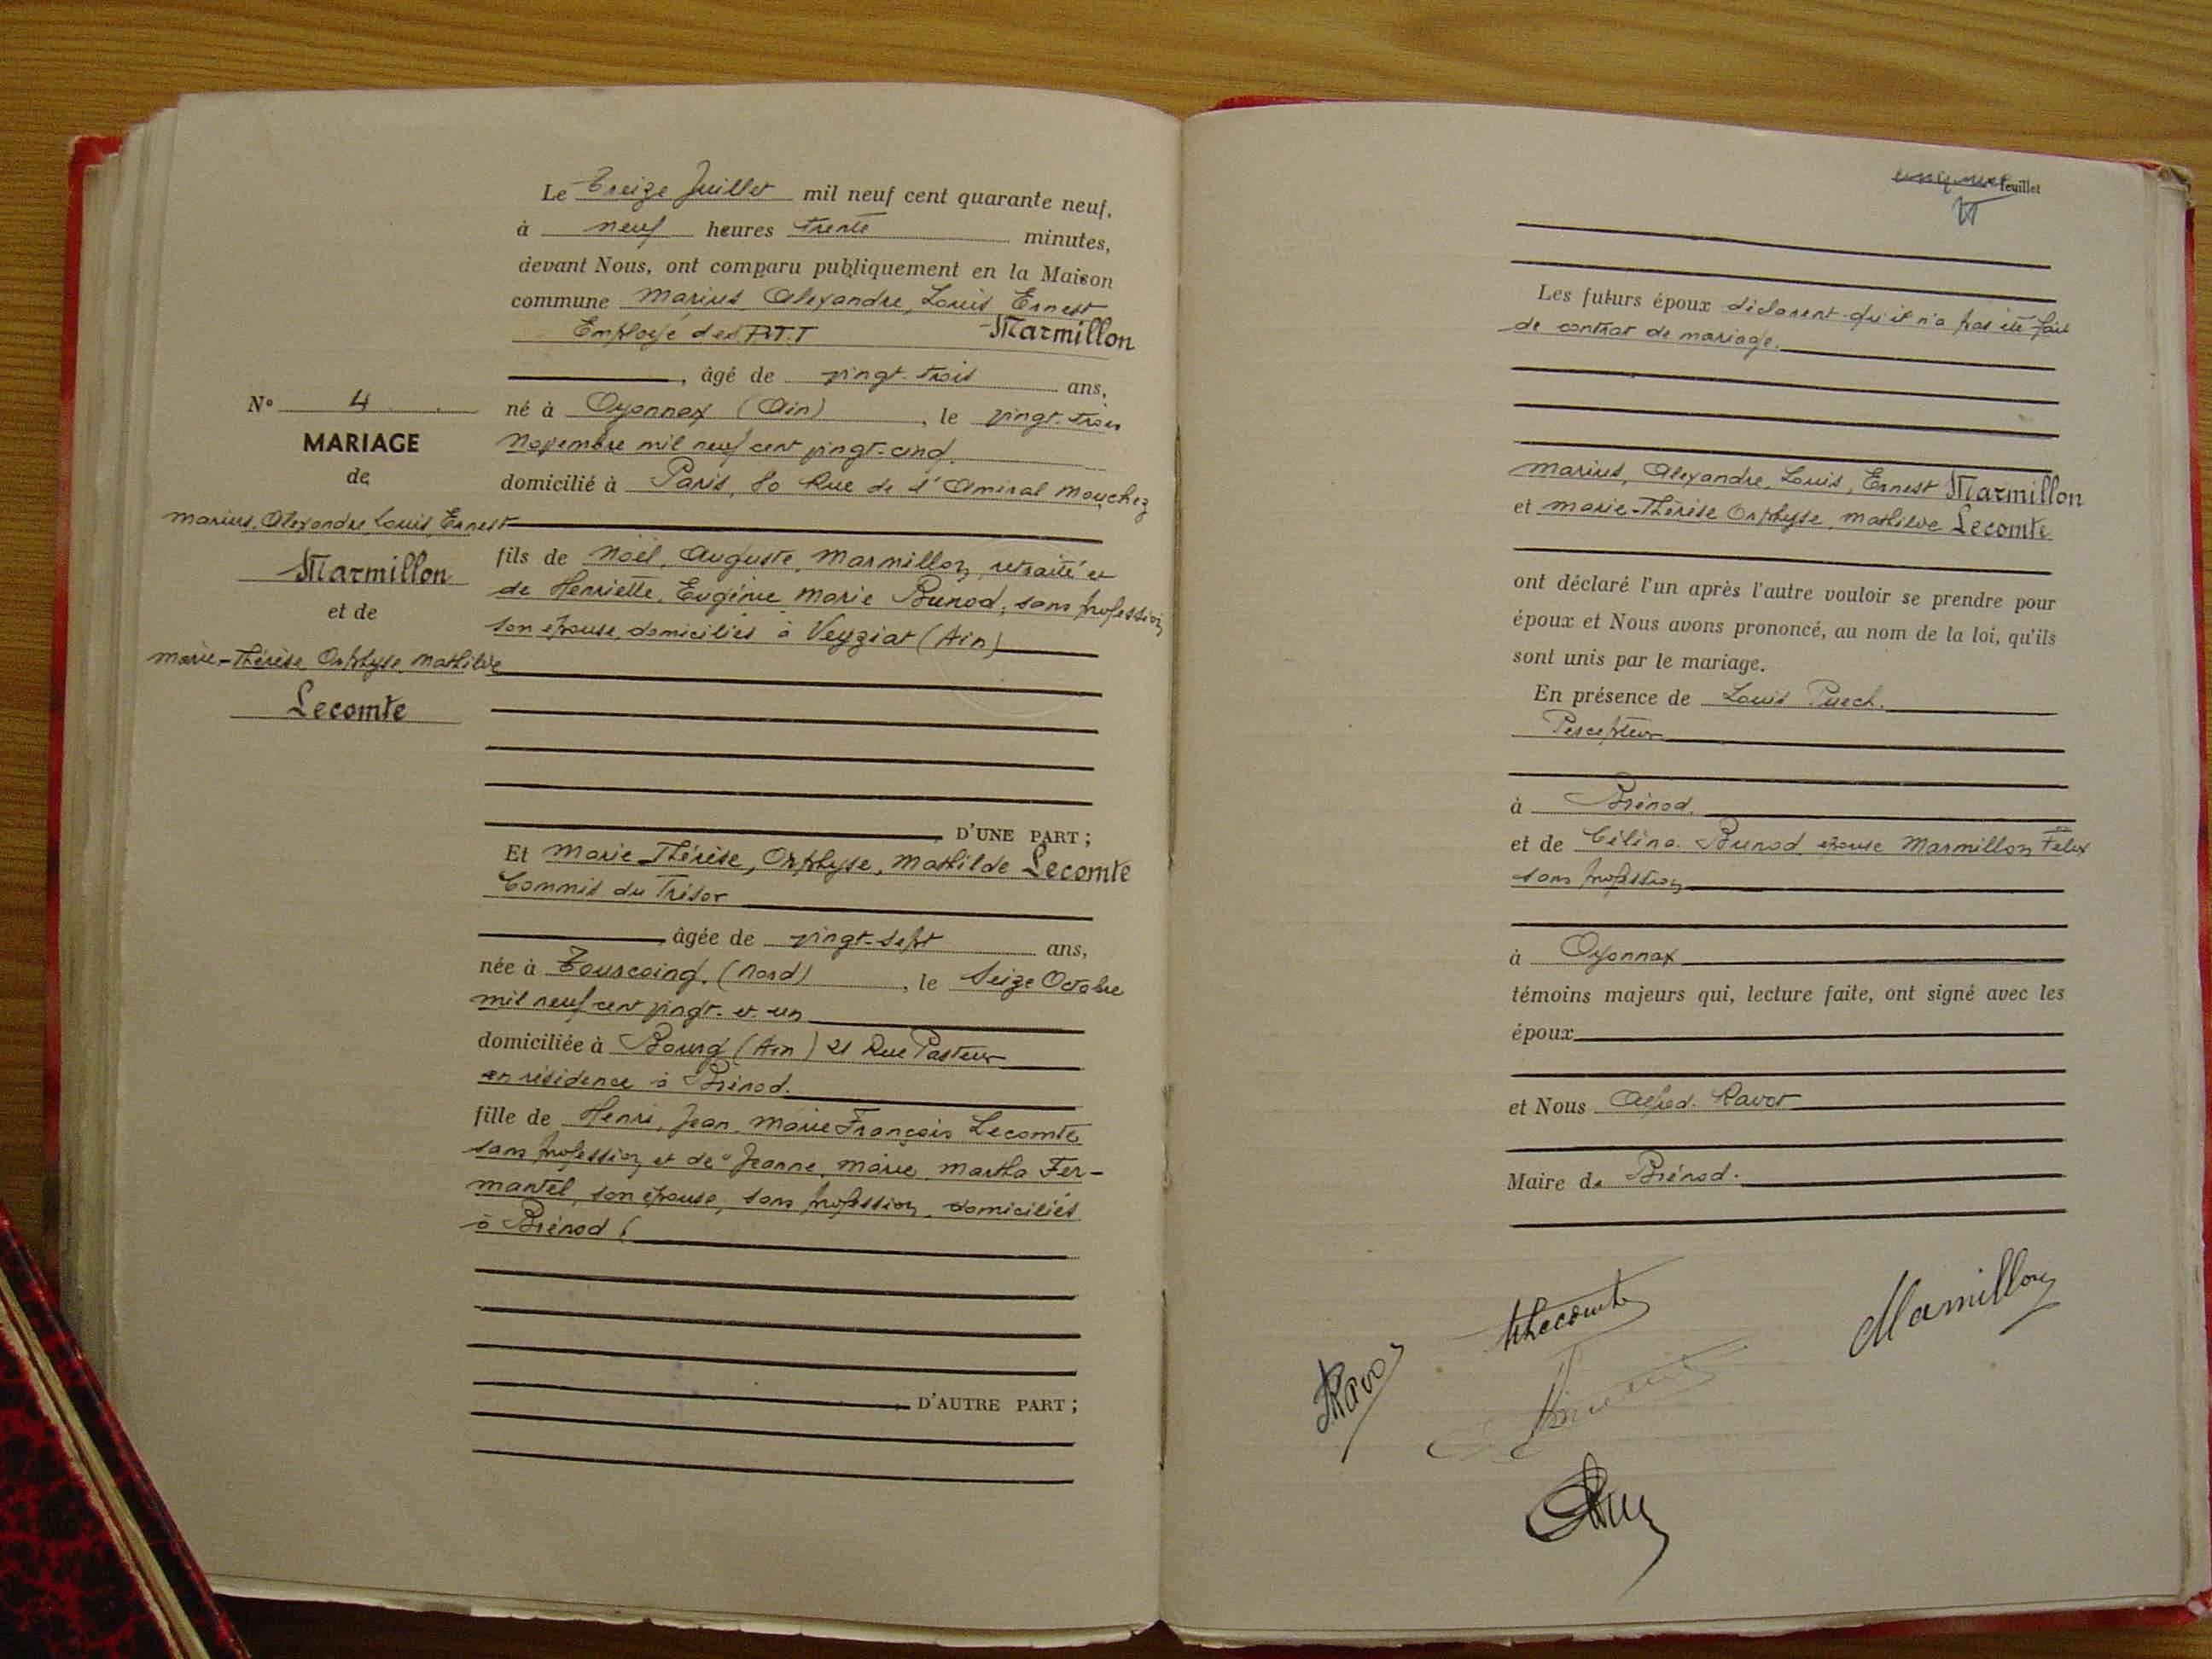 Le Treize Juillet mil neuf cent quarante neuf,
à neuf heures trente minutes,
devant Nous, ont comparu publiquement en la Maison
commune Marius, Alexandre, Louis Ernest
Employé des P.T.T Marmillon
, âgé de vingt-trois ans,
né à Oyonnax (Ain), le vingt-trois
Novembre mil neuf cent vingt-cinq.
domicilié à Paris, 80 Rue de l'Amiral Mouchez
fils de Noël, Auguste, Marmillon, retraité et
de Henriette, Eugénie Marie Bunod, sans profession
son épouse, domiciliés à Veyziat (Ain)
D'UNE PART ;
N° 4
MARIAGE
de
Marius, Alexandre, Louis, Ernest
Marmillon
et de
Marie-Thérèse Orphyse, Mathilde
Lecomte
Et Marie-Thérèse, Orphyse, Mathilde Lecomte
Commis du Trésor
âgée de vingt-sept ans,
née à Tourcoing. (Nord), le Seize Octobre
mil neuf cent vingt-et-un
domiciliée à Bourg (Ain) 21 Rue Pasteur
en résidence à Brénod.
fille de Henri, Jean, Marie François Lecomte
sans profession et de Jeanne, Marie, Martha Fer-
mantel, son épouse, sans profession, domiciliés
à Brénod (
D'AUTRE PART ;
feuillet
Les futurs époux déclarent qu'il n'a pas été fait
de contrat de mariage.
Marius, Alexandre, Louis, Ernest Marmillon
et Marie-Thérèse Orphyse, Mathilde Lecomte
ont déclaré l'un après l'autre vouloir se prendre pour
époux et Nous avons prononcé, au nom de la loi, qu'ils
sont unis par le mariage.
En présence de Louis Puech.
Percepteur
à Brénod.
et de Célina Bunod épouse Marmillon Félix
sans profession
à Oyonnax
témoins majeurs qui, lecture faite, ont signé avec les
époux
et Nous Alfred Ravot
Maire de Brénod.
Lecomte
Marmillon
Ravot